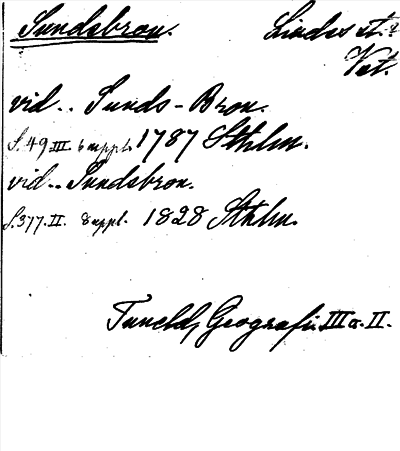 Sundsbron. Lindes st.?
Vst.
vid .. Sunds-Bron.
S. 49 III 6 uppl. 1787 Sthlm.
vid .. Sundsbron.
S. 377. II. 8 uppl. 1828 Sthlm.
Tunelds Geografi III o. II.